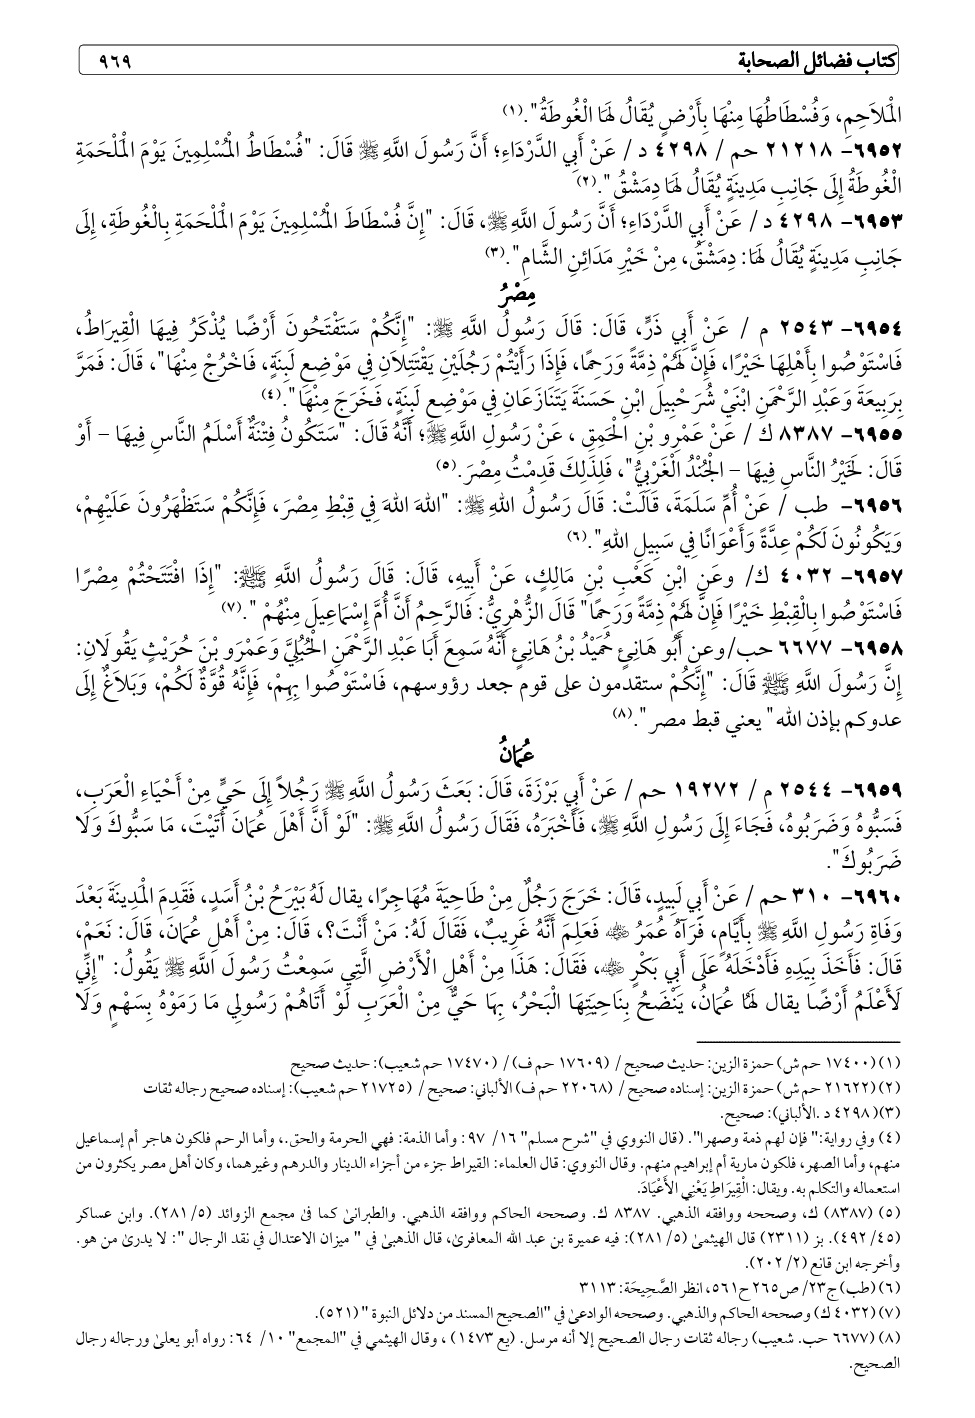 كتاب فضائل الصحابة ٩٦٩
الْمَلَاحِمِ، وَفُسْطَاطُهَا مِنْهَا بِأَرْضٍ يُقَالُ لَهَا الْغُوطَةُ".(١)
٦٩٥٢- ٢١٢١٨ حم / ٤٢٩٨ د / عَنْ أَبِي الدَّرْدَاءِ؛ أَنَّ رَسُولَ اللَّهِ ﷺ قَالَ: "فُسْطَاطُ الْمُسْلِمِينَ يَوْمَ الْمَلْحَمَةِ
الْغُوطَةُ إِلَى جَانِبِ مَدِينَةٍ يُقَالُ لَهَا دِمَشْقُ".(٢)
٦٩٥٣- ٤٢٩٨ د/ عَنْ أَبِي الدَّرْدَاءِ؛ أَنَّ رَسُولَ اللَّهِ ﷺ، قَالَ: "إِنَّ فُسْطَاطَ الْمُسْلِمِينَ يَوْمَ الْمَلْحَمَةِ بِالْغُوطَةِ، إِلَى
جَانِبِ مَدِينَةٍ يُقَالُ لَهَا: دِمَشْقُ، مِنْ خَيْرِ مَدَائِنِ الشَّامِ".(٣)
مِصْرُ
٦٩٥٤- ٢٥٤٣ م / عَنْ أَبِي ذَرٍّ، قَالَ: قَالَ رَسُولُ اللَّهِ ﷺ: "إِنَّكُمْ سَتَفْتَحُونَ أَرْضًا يُذْكَرُ فِيهَا الْقِيرَاطُ،
فَاسْتَوْصُوا بِأَهْلِهَا خَيْرًا، فَإِنَّ لَهُمْ ذِمَّةً وَرَحِمًا، فَإِذَا رَأَيْتُمْ رَجُلَيْنِ يَقْتَتِلَانِ فِي مَوْضِعِ لَبِنَةٍ، فَاخْرُجْ مِنْهَا"، قَالَ: فَمَرَّ
بِرَبِيعَةَ وَعَبْدِ الرَّحْمَنِ ابْنَيْ شُرَحْبِيلَ ابْنِ حَسَنَةَ يَتَنَازَعَانِ فِي مَوْضِعِ لَبِنَةٍ، فَخَرَجَ مِنْهَا".(٤)
٦٩٥٥- ٨٣٨٧ ك / عَنْ عَمْرِو بْنِ الْحَمِقِ ، عَنْ رَسُولِ اللَّهِ ﷺ؛ أَنَّهُ قَالَ: "سَتَكُونُ فِتْنَةٌ أَسْلَمُ النَّاسِ فِيهَا – أَوْ
قَالَ: لَخَيْرُ النَّاسِ فِيهَا – الْجُنْدُ الْغَرْبِيُّ"، فَلِذَلِكَ قَدِمْتُ مِصْرَ.(٥)
٦٩٥٦- طب / عَنْ أُمِّ سَلَمَةَ، قَالَتْ: قَالَ رَسُولُ اللهِ ﷺ: "اللهَ اللهَ فِي قِبْطِ مِصْرَ، فَإِنَّكُمْ سَتَظْهَرُونَ عَلَيْهِمْ،
وَيَكُونُونَ لَكُمْ عِدَّةً وَأَعْوَانًا فِي سَبِيلِ اللهِ".(٦)
٦٩٥٧- ٤٠٣٢ ك/ وعَنِ ابْنِ كَعْبِ بْنِ مَالِكٍ، عَنْ أَبِيهِ، قَالَ: قَالَ رَسُولُ اللَّهِ ﷺ: "إِذَا افْتَتَحْتُمْ مِصْرًا
فَاسْتَوْصُوا بِالْقِبْطِ خَيْرًا فَإِنَّ لَهُمْ ذِمَّةً وَرَحِمًا" قَالَ الزُّهْرِيُّ: فَالرَّحِمُ أَنَّ أُمَّ إِسْمَاعِيلَ مِنْهُمْ ".(٧)
٦٩٥٨- ٦٦٧٧ حب/وعن أَبُو هَانِئٍ حُمَيْدُ بْنُ هَانِئٍ أَنَّهُ سَمِعَ أَبَا عَبْدِ الرَّحْمَنِ الْحُبُلِيَّ وَعَمْرو بْنَ حُرَيْثٍ يَقُولَانِ:
إِنَّ رَسُولَ اللَّهِ ﷺ قَالَ: "إِنَّكُمْ ستقدمون على قوم جعد رؤوسهم، فَاسْتَوْصُوا بِهِمْ، فَإِنَّهُ قُوَّةٌ لَكُمْ، وَبَلَاغٌ إِلَى
عدوكم بإذن الله" يعني قبط مصر ".(٨)
عُمَانُ
٦٩٥٩- ٢٥٤٤ م / ١٩٢٧٢ حم / عَنْ أَبِي بَرْزَةَ، قَالَ: بَعَثَ رَسُولُ اللَّهِ ﷺ رَجُلًا إِلَى حَيٍّ مِنْ أَحْيَاءِ الْعَرَبِ،
فَسَبُّوهُ وَضَرَبُوهُ، فَجَاءَ إِلَى رَسُولِ اللَّهِ ﷺ، فَأَخْبَرَهُ، فَقَالَ رَسُولُ اللَّهِ ﷺ: "لَوْ أَنَّ أَهْلَ عُمَانَ أَتَيْتَ، مَا سَبُّوكَ وَلَا
ضَرَبُوكَ".
٦٩٦٠- ٣١٠ حم / عَنْ أَبِي لَبِيدٍ، قَالَ: خَرَجَ رَجُلٌ مِنْ طَاحِيَةَ مُهَاجِرًا، يقال لَهُ بَيْرَحُ بْنُ أَسَدٍ، فَقَدِمَ الْمَدِينَةَ بَعْدَ
وَفَاةِ رَسُولِ اللَّهِ ﷺ بِأَيَّامٍ، فَرَآهُ عُمَرُ ﵁ فَعَلِمَ أَنَّهُ غَرِيبٌ، فَقَالَ لَهُ: مَنْ أَنْتَ؟، قَالَ: مِنْ أَهْلِ عُمَانَ، قَالَ: نَعَمْ،
قَالَ: فَأَخَذَ بِيَدِهِ فَأَدْخَلَهُ عَلَى أَبِي بَكْرٍ ﵁، فَقَالَ: هَذَا مِنْ أَهْلِ الْأَرْضِ الَّتِي سَمِعْتُ رَسُولَ اللَّهِ ﷺ يَقُولُ: "إِنِّي
لَأَعْلَمُ أَرْضًا يقال لَهَا عُمَانُ، يَنْضَحُ بِنَاحِيَتِهَا الْبَحْرُ، بِهَا حَيٌّ مِنْ الْعَرَبِ لَوْ أَتَاهُمْ رَسُولِي مَا رَمَوْهُ بِسَهْمٍ وَلَا
(١) (١٧٤٠٠ حم ش) حمزة الزين: حديث صحيح / (١٧٦٠٩ حم ف) / (١٧٤٧٠ حم شعيب): حديث صحيح
(٢) (٢١٦٢٢ حم ش) حمزة الزين: إسناده صحيح / (٢٢٠٦٨ حم ف) الألباني: صحيح / (٢١٧٢٥ حم شعيب): إسناده صحيح رجاله ثقات
(٣)(٤٢٩٨ د .الألباني): صحيح.
(٤) وفي رواية:" فإن لهم ذمة وصهرا". (قال النووي في "شرح مسلم" ١٦/ ٩٧: وأما الذمة: فهي الحرمة والحق.، وأما الرحم فلكون هاجر أم إسماعيل
منهم، وأما الصهر، فلكون مارية أم إبراهيم منهم. وقال النووي: قال العلماء: القيراط جزء من أجزاء الدينار والدرهم وغيرهما، وكان أهل مصر يكثرون من
استعماله والتكلم به. ويقال: الْقِيرَاطِ يَعْنِي الأَعْيَادَ.
(٥) (٨٣٨٧) ك، وصححه ووافقه الذهبي. ٨٣٨٧ ك. وصححه الحاكم ووافقه الذهبي. والطبرانى كما فى مجمع الزوائد (٢٨١/٥). وابن عساكر
(٤٩٢/٤٥). بز (٢٣١١) قال الهيثمى (٢٨١/٥): فيه عميرة بن عبد الله المعافرى، قال الذهبى في " ميزان الاعتدال في نقد الرجال ": لا يدرى من هو.
وأخرجه ابن قانع (٢٠٢/٢).
(٦) (طب) ج٢٣/ ص٢٦٥ ح٥٦١، انظر الصَّحِيحَة: ٣١١٣
(٧) (٤٠٣٢ ك) وصححه الحاكم والذهبي. وصححه الوادعى في "الصحيح المسند من دلائل النبوة " (٥٢١).
(٨) (٦٦٧٧ حب. شعيب) رجاله ثقات رجال الصحيح إلا أنه مرسل. (يع ١٤٧٣) ، وقال الهيثمي في "المجمع" ١٠/ ٦٤: رواه أبو يعلى ورجاله رجال
الصحيح.